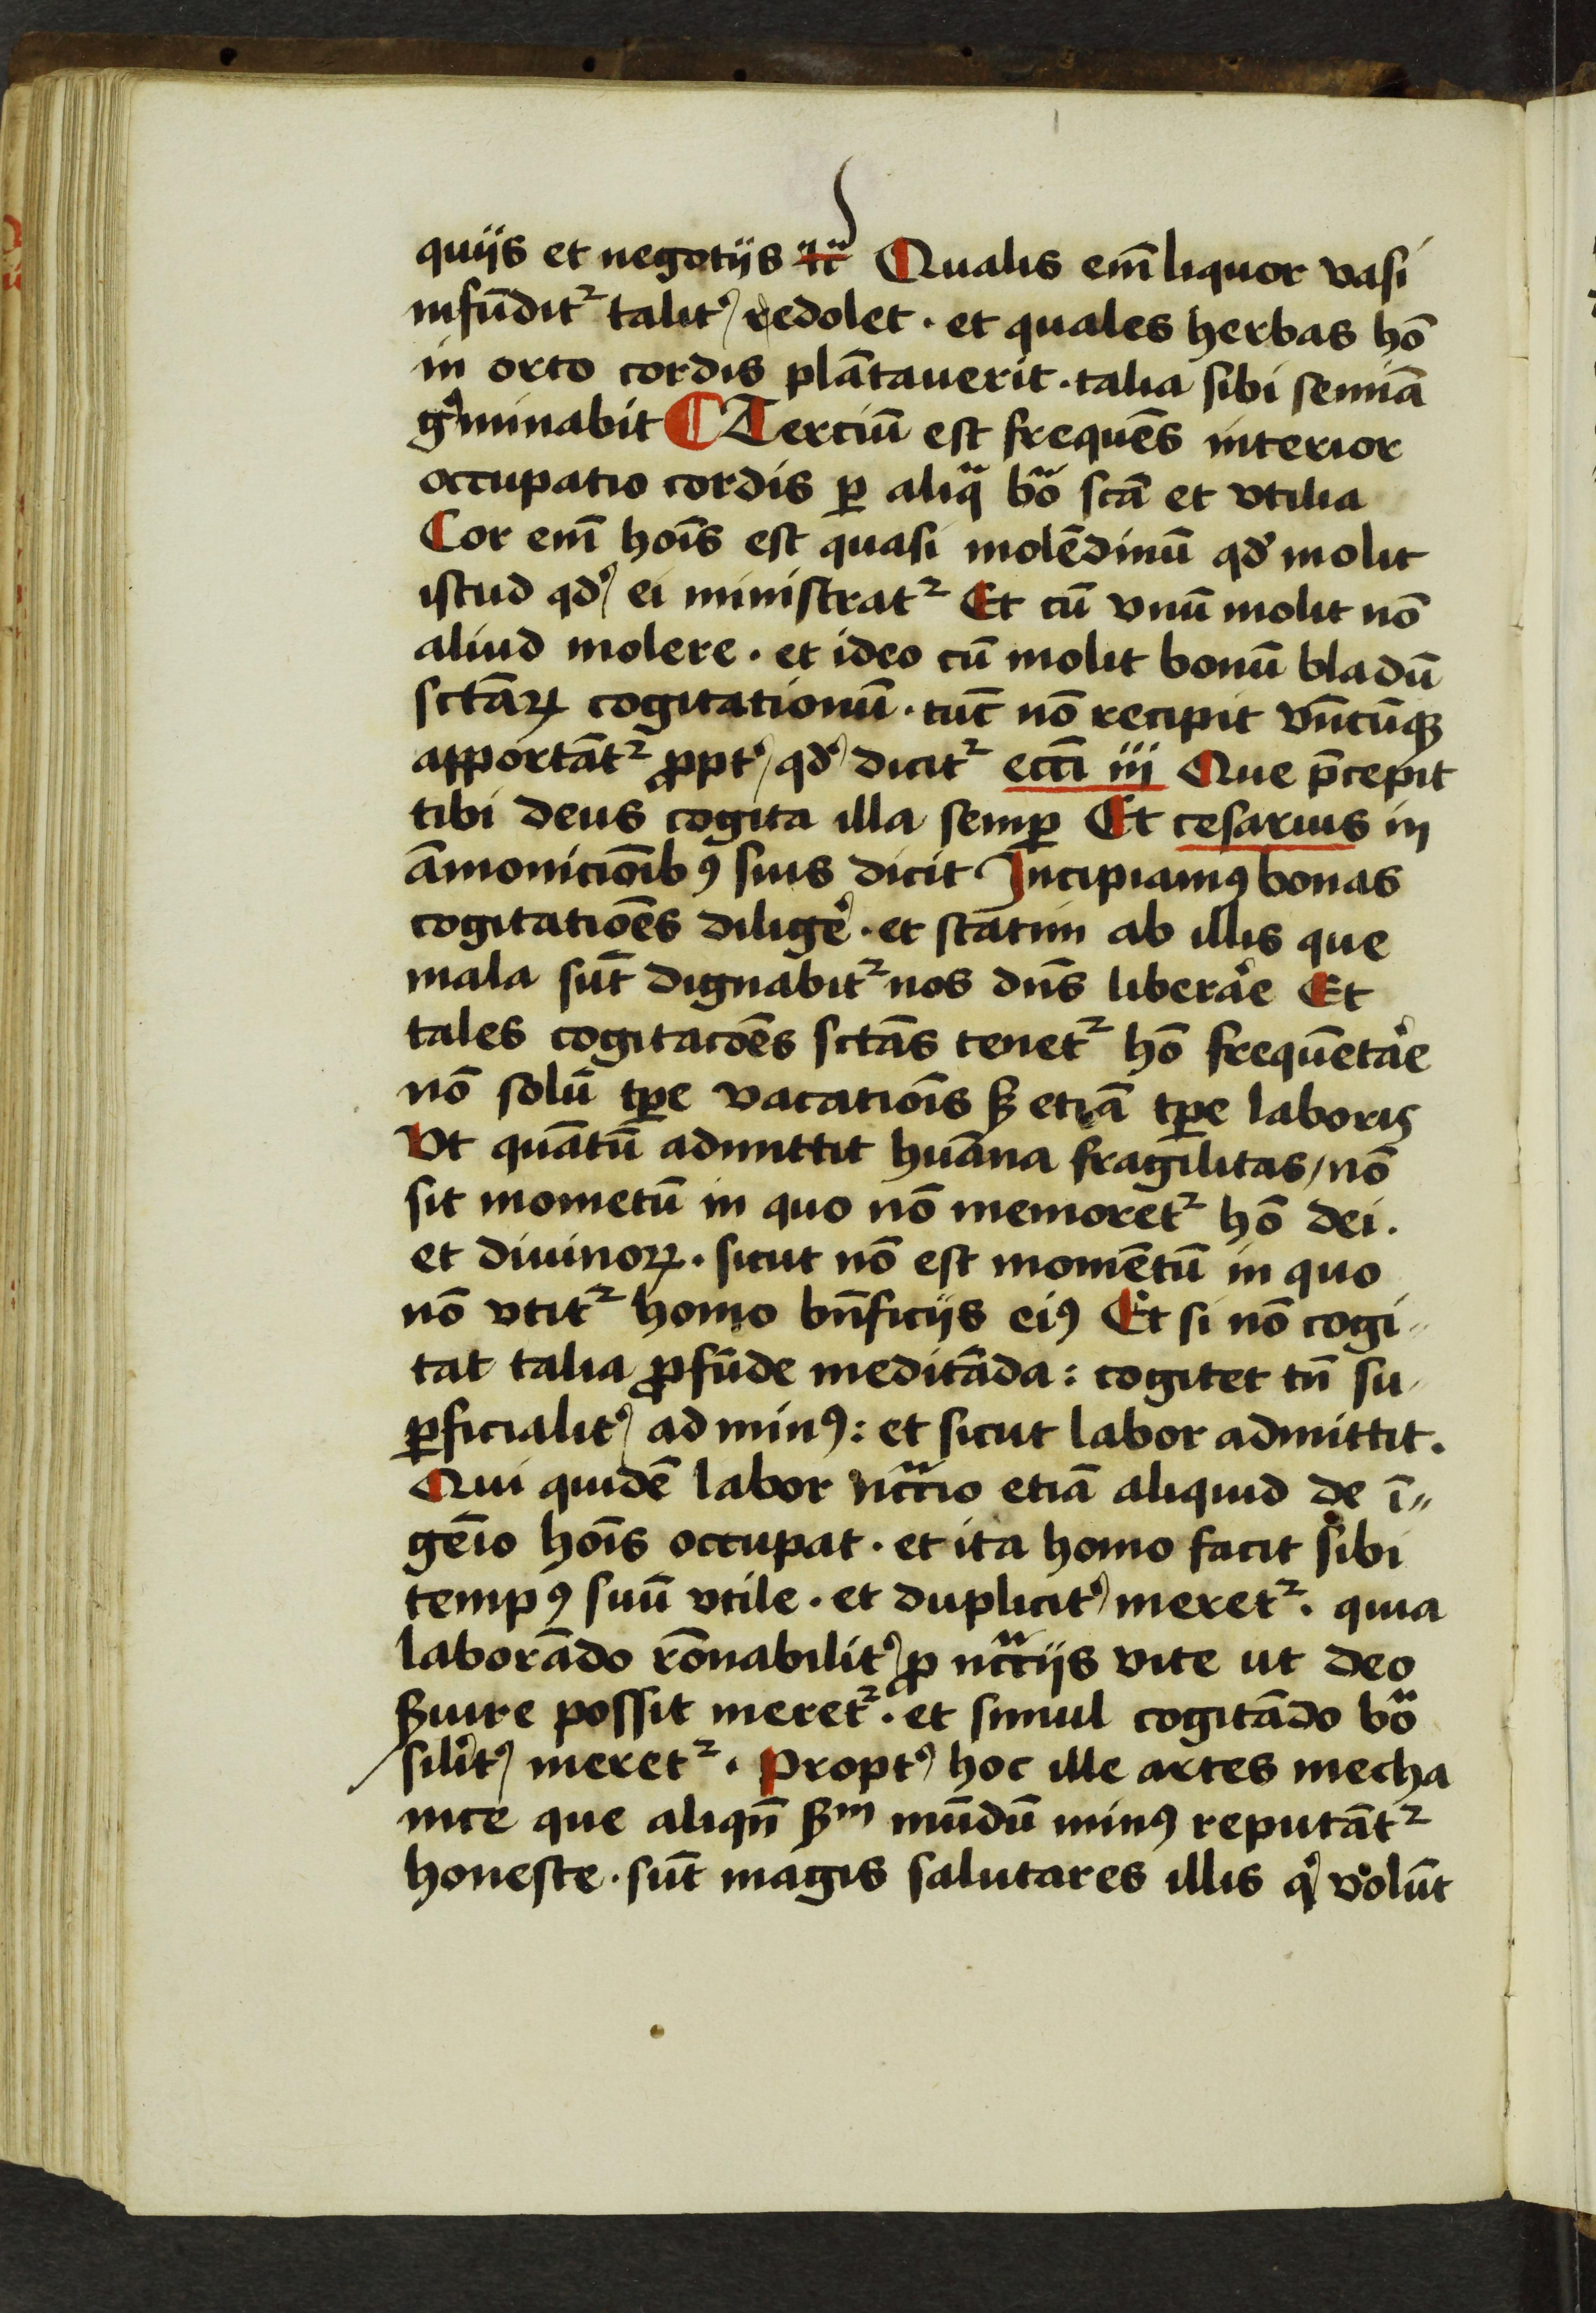 quijs et negotijs Qualis em̄ liquor vasi
infūditᷣ talit᾽ redolet · et quales herbas hō
in orto cordis plātauerit · talia sibi semīa
g᾽minabit ¶ Terciū est frequēs interior
occupatio cordis ꝑ aliqᷓ boᷓ sctā et vtilia
Cor em̄ hoīs est quasi molēdinū qd᾽ molit
istud qd᾽ ei ministratᷣ Et cū vnū molit nō
aliud molere · et ideo cū molit bonū bladū
sctāꝝ cogitationū · tūc nō recipit vn̄cūqꝫ
apportātᷣ ꝓpt᾽ qd᾽ dicitᷣ eccī iii Que p̄cepit
tibi deus cogita illa semꝑ Et cesarius in
āmonicioībꝰ suis dicit Incipiamꝰ bonas
cogitatiōes diligē᾽ · et statim ab illis que
mala sūt dignabitᷣ nos dn̄s liberar̄e Et
tales cogitacōes sctās tenetᷣ hō frequētar̄e
nō solū tꝑe vacatiōis sꝫ etiā tꝑe laboris
Vt quātū admittit huāna fragilitas / nō
sit mometū in quo nō memoretᷣ hō dei ·
et diuinoꝝ · sicut nō est momētū in quo
nō vtitᷣ homo bn̄ficijs eiꝰ Et si nō cogi〃
tat talia ꝓfūde meditāda : cogitet tn̄ su〃
ꝑficialit᾽ ad minꝰ : et sicut labor admittit ·
Qui quidē labor nccᷓio etiā aliquid de ī〃
gēio hoīs occupat · et ita homo facit sibi
tempꝰ suū vtile · et duplicit᾽ meretᷣ · quia
laborādo rōnabilit᾽ ꝓ nccᷓijs vite ut deo
ẜuire possit meretᷣ · et simul cogitādo boᷓ
silit᾽ meretᷣ · Propt᾽ hoc ille artes mecha
nice que aliqn̄ ẜm mūdū minꝰ reputātᷣ
honeste · sūt magis salutares illis qͥ volūt